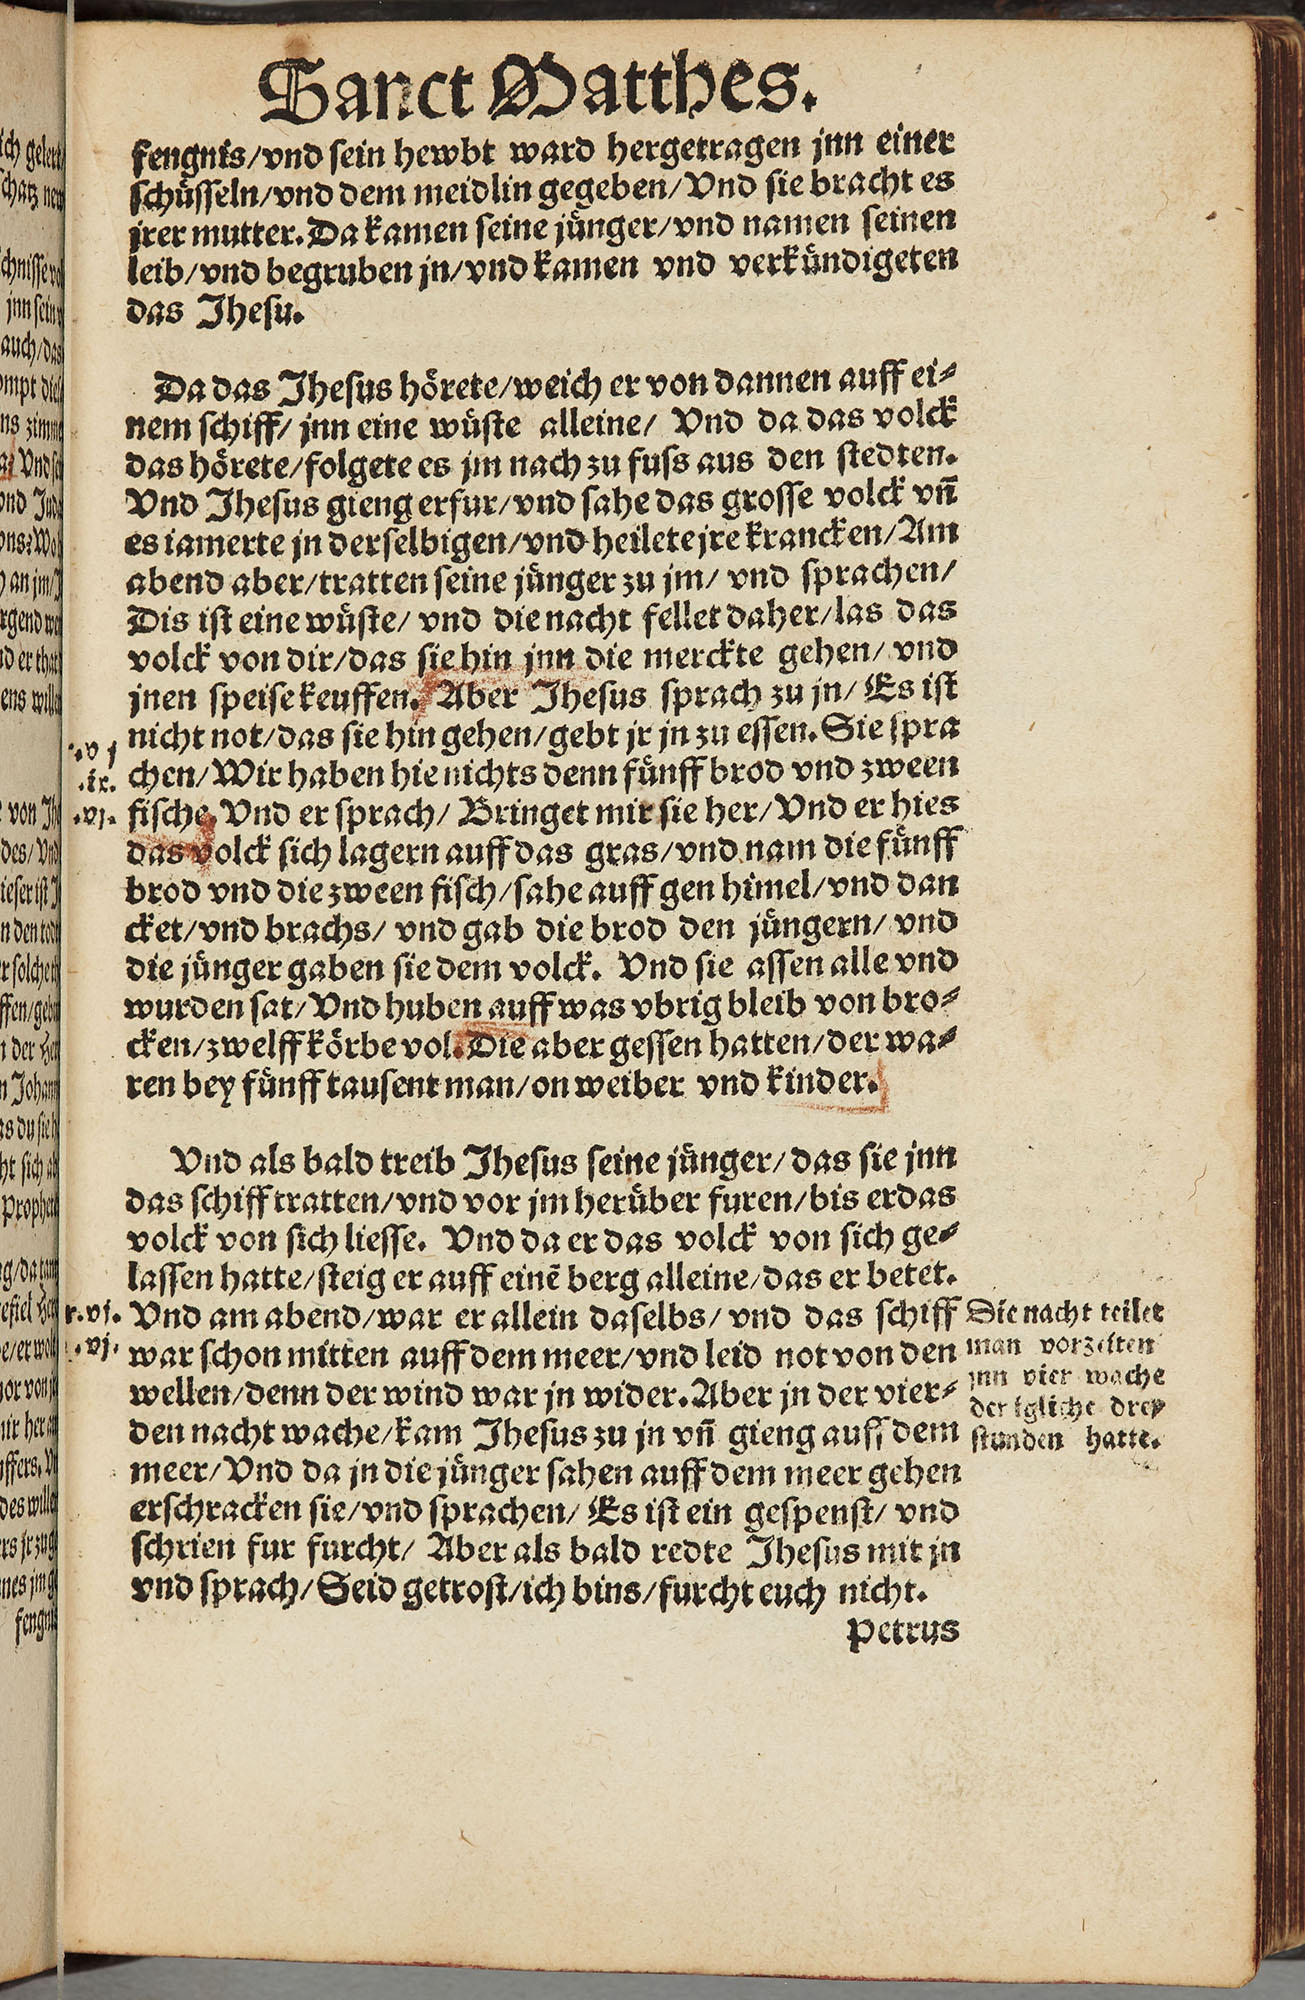 Sanct Matthes.
fengnis/vnd sein hewbt ward hergetragen jnn einer
schüsseln/vnd dem meidlin gegeben/Vnd sie bracht es
jrer mutter. Da kamen seine jünger/vnd namen seinen
leib/vnd begruben jn/vnd kamen vnd verkündigeten
das Jhesu.
Da das Jhesus hörete/weich er von dannen auff ei-
nem schiff/ jnn eine wüste alleine/ Vnd da das volck
das hörete/folgete es jm nach zu fuss aus den stedten.
Vnd Jhesus gieng erfur/vnd sahe das grosse volck vñ
es iamerte jn derselbigen/vnd heilete jre krancken/Am
abend aber/tratten seine jünger zu jm/ vnd sprachen/
Dis ist eine wüste/ vnd die nacht fellet daher/las das
volck von dir/das sie hin jnn die merckte gehen/ vnd
jnen speise keuffen. Aber Jhesus sprach zu jn/ Es ist
nicht not/das sie hin gehen/gebt jr jn zu essen. Sie spra
chen/Wir haben hie nichts denn fünff brod vnd zween
fische. Vnd er sprach/ Bringet mir sie her/Vnd er hies
das volck sich lagern auff das gras/vnd nam die fünff
brod vnd die zween fisch/sahe auff gen himel/vnd dan
cket/vnd brachs/ vnd gab die brod den jüngern/ vnd
die jünger gaben sie dem volck. Vnd sie assen alle vnd
wurden sat/Vnd huben auff was vbrig bleib von bro-
cken/zwelff körbe vol. Die aber gessen hatten/der wa-
ren bey fünff tausent man/on weiber vnd kinder.
Vnd als bald treib Jhesus seine jünger/das sie jnn
das schiff tratten/vnd vor jm herüber furen/bis er das
volck von sich liesse. Vnd da er das volck von sich ge-
lassen hatte/steig er auff einē berg alleine/das er betet.
Vnd am abend/war er allein daselbs/ vnd das schiff
war schon mitten auff dem meer/vnd leid not von den
wellen/denn der wind war jn wider. Aber jn der vier-
den nacht wache/kam Jhesus zu jn vñ gieng auff dem
meer/Vnd da jn die jünger sahen auff dem meer gehen
erschracken sie/vnd sprachen/ Es ist ein gespenst/ vnd
schrien fur furcht/ Aber als bald redte Jhesus mit jn
vnd sprach/Seid getrost/ich bins/furcht euch nicht.
Petrus
.vj.
.ix.
.vj.
.vj.
.vj.
Die nacht teilet
man vorzeiten
jnn vier wache
der igliche drey
stunden hatte.